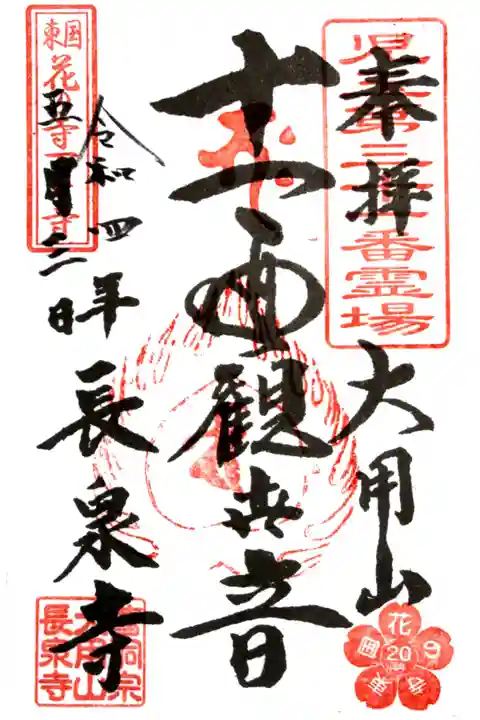 奉拝
大用山
十一面観世音
令和四年
五月三日
長泉寺
児玉第三十三番霊場
東国花の寺百ヶ寺
曹洞宗
大用山
長泉寺
花
20